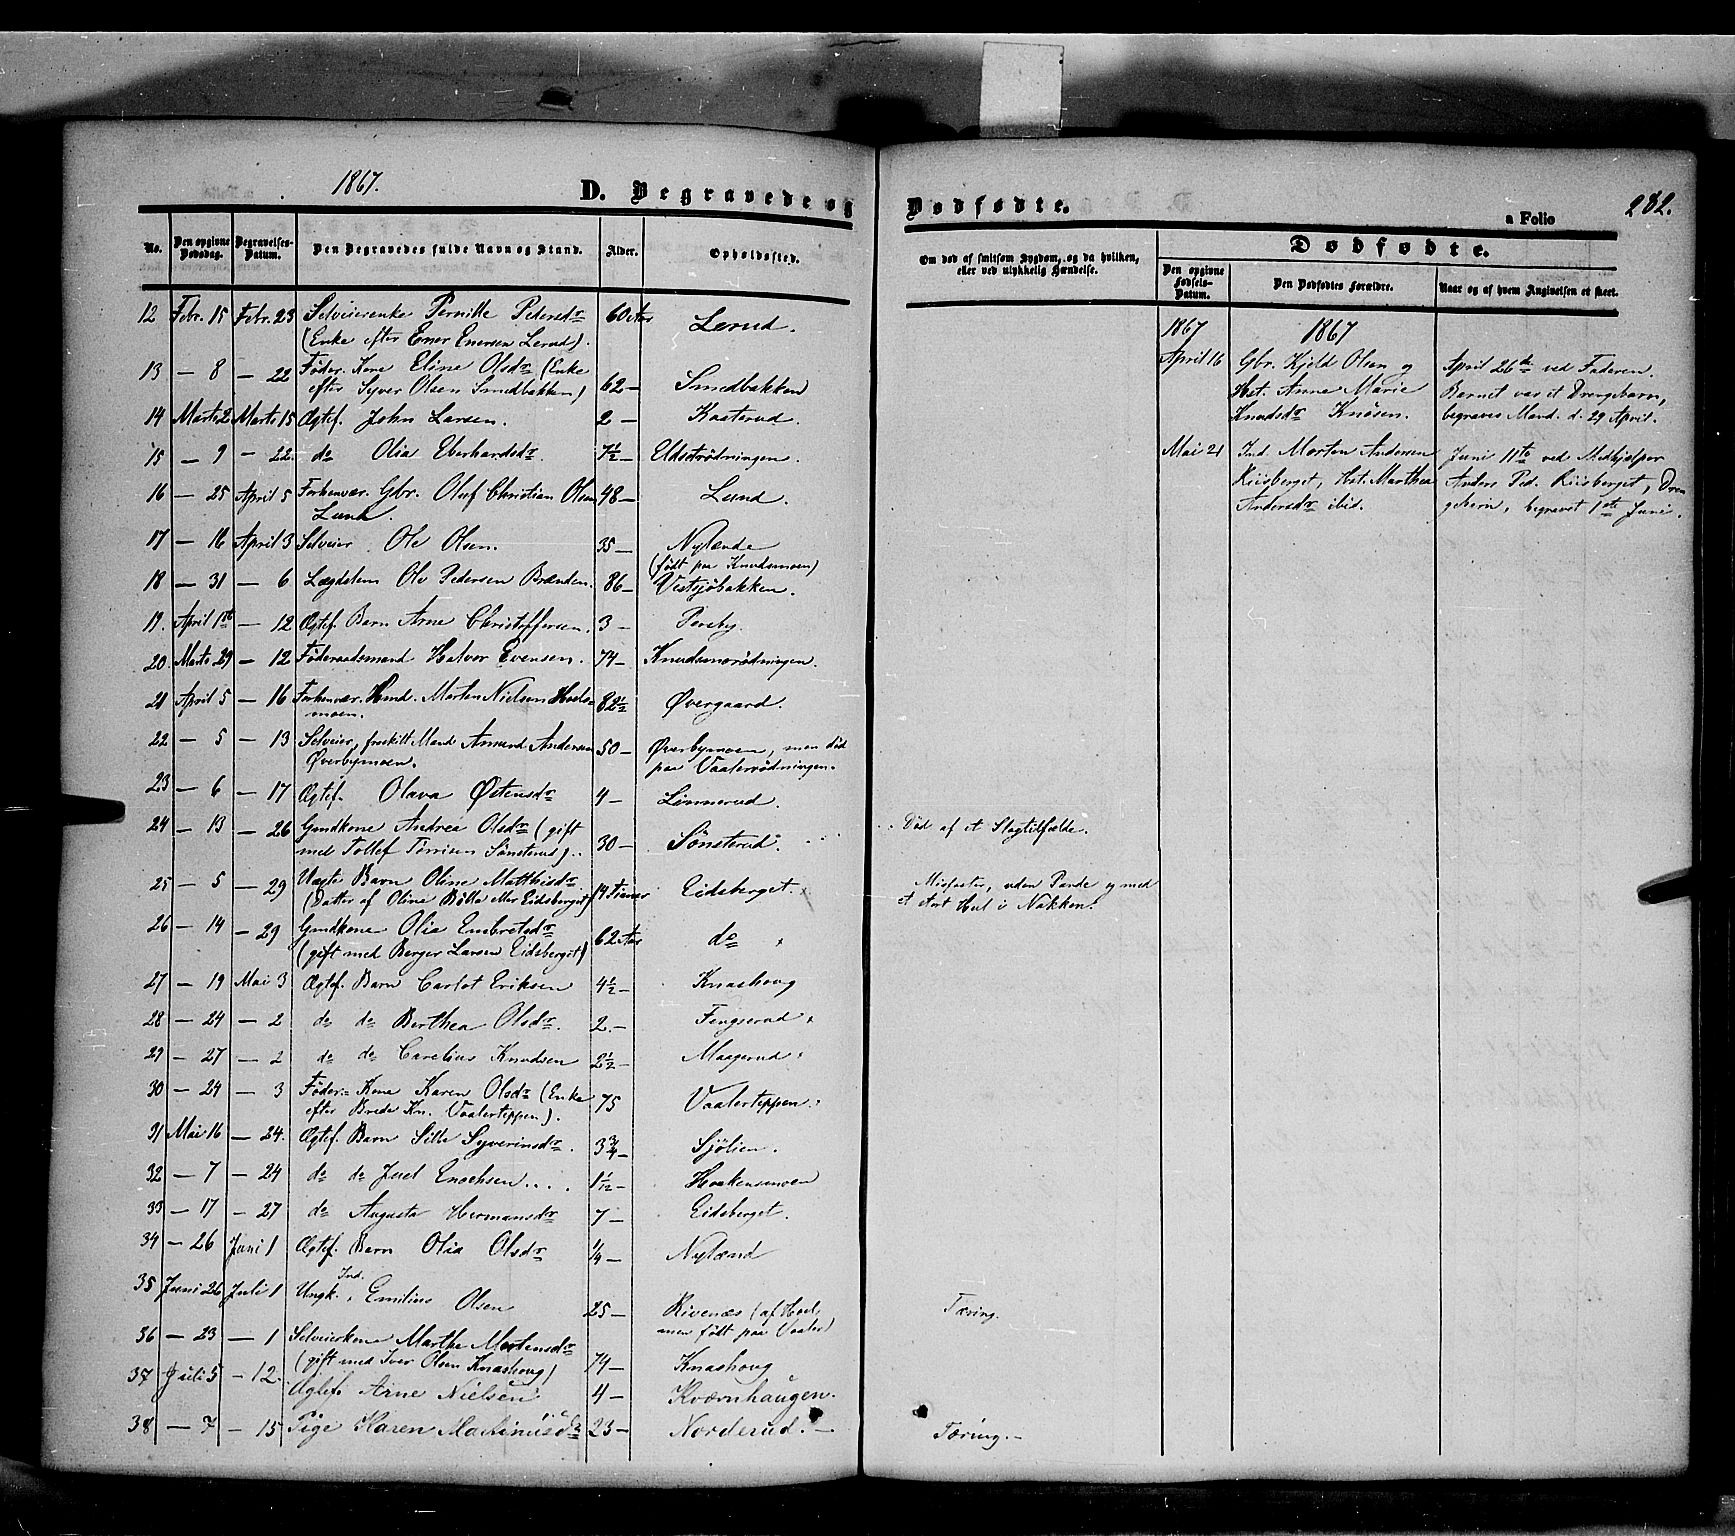 1867.
D. Begravede og Dødfødte.
a Folio 282.
No. Den opgivne Dødsdag. Begravelses-Datum. Den Begravedes fulde Navn og Stand. Alder. Opholdssted.
Om død af smitsom Sygdom, og da hvilken, eller ved ulykkelig Hændelse.
Dødfødte.
Den opgivne Fødsels-Datum. Den Dødfødtes Forældre. Naar og af hvem Angivelsen er skeet.
12 Febr. 15 Febr. 23 Selveierenke Pernille Pedersdr 60 Aar Lerud.
(Enke efter Ener Enersen Lerud).
13 — 8 — 22 Føder. Kone Eline Olsdr (Enke
efter Syver Olsen Smedbakken) 62 — Smedbakken
14 Marts 2 Marts 15 Ægtef. John Larsen. 2 — Kasterud.
15 — 9 — 22. do Olia Eberhardsdr. 7½ — Eldsetrødningen.
16 — 25 April 5 Forhenvær. Gbr. Oluf Christian Olsen 48 — Lund.
Lund.
17 — 16 April 3 Selveier Ole Olsen. 35 — Nylænde
(født paa Knudsmoen)
18 — 31 — 6 Lægdslem Ole Pedersen Brænden. 86 — Vestsjøbakken.
19. April 1ste — 12 Ægtef. Barn Arne Christoffersen. 3 — Porsby.
20. Marts 29 — 12 Føderaadsmand Halvor Evensen. 74 — Knudsmorødningen.
21 April 5 — 16 Forhenvær. Hmd. Morten Nielsen Hoels-
moen. 82½ Øvergaard.
22 — 5 — 13 Selveier, fraskilt Mand Amund Andersen 50 — Øverbymoen, men død
Øverbymoen. paa Vaalerrødningen.
23 — 6 — 17 Ægtef. Olava Østensdr 4 — Linnerud.
24 — 13 — 26 Gmdkone Andrea Olsdr (gift
med Tollef Tørrisen Sønsterud). 30 — Sønsterud. Død af et Slagtilfælde.
25 — 5 — 29 Uægte Barn Oline Matthisdr
(Datter af Olina Bølla eller Eidsberget) 14 Timer Eidsberget Misfoster, uden Pande og med
et stort Hul i Nakken.
26 — 14 — 29 Gmdkone Olia Embretsdr
(gift med Berger Larsen Eidsberget) 62 Aar do
27 — 19 Mai 3 Ægtef. Barn Carlot Eriksen 4½ — Knashoug
28 — 24 — 2 do do Berthea Olsdr. 2. — Fingserud.
29 — 27 — 2 do do Carelius Knudsen 2½ — Maagerud.
30 — 24 — 3 Føder- Kone Karen Olsdr (Enke
efter Brede Kn. Vaalerteppen). 75 Vaalerteppen.
31 Mai 16 — 24. Ægtef. Barn Sille Syverinsdr. 3¾ — Sjølien.
32 — 7 — 24 do do Juel Enochsen.... 1 1/12 — Haakensmoen
33 — 17 — 27 do Augusta Hermansdr 7 — Eidsberget.
34 — 26 Juni 1 Ægtef. Barn Olia Olsdr ¼ — Nylænd
35 Juni 26 Juli 1 Ungk. Ind. Emilius Olsen 25 — Rivenæs (af Hoel,
men født paa Vaaler) Tæring.
36 — 23 — 1 Selveierkone Marthe Mortensdr
(gift med Iver Olsen Knashoug) 74 — Knashoug
37 Juli 5 — 12. Ægtef. Arne Nielsen 4 — Kværnhaugen.
38 — 7 — 15 Pige Karen Martinusdr 23 — Norderud. — Tæring. —
1867 1867
April 16 Gbr. Kjeld Olsen og April 26de ved Faderen.
Hst. Anne Marie Barnet var et Drengebarn,
Knudsdr Knøsen. begraves Mand. d. 29 April.
Mai 21 Ind. Morten Andersen Juni 11te ved Medhjælper
Riisberget, Hst. Marthea Anders Ped. Riisberget, Dren
Andersdr ibid. gebarn, begravet 1ste Juni.